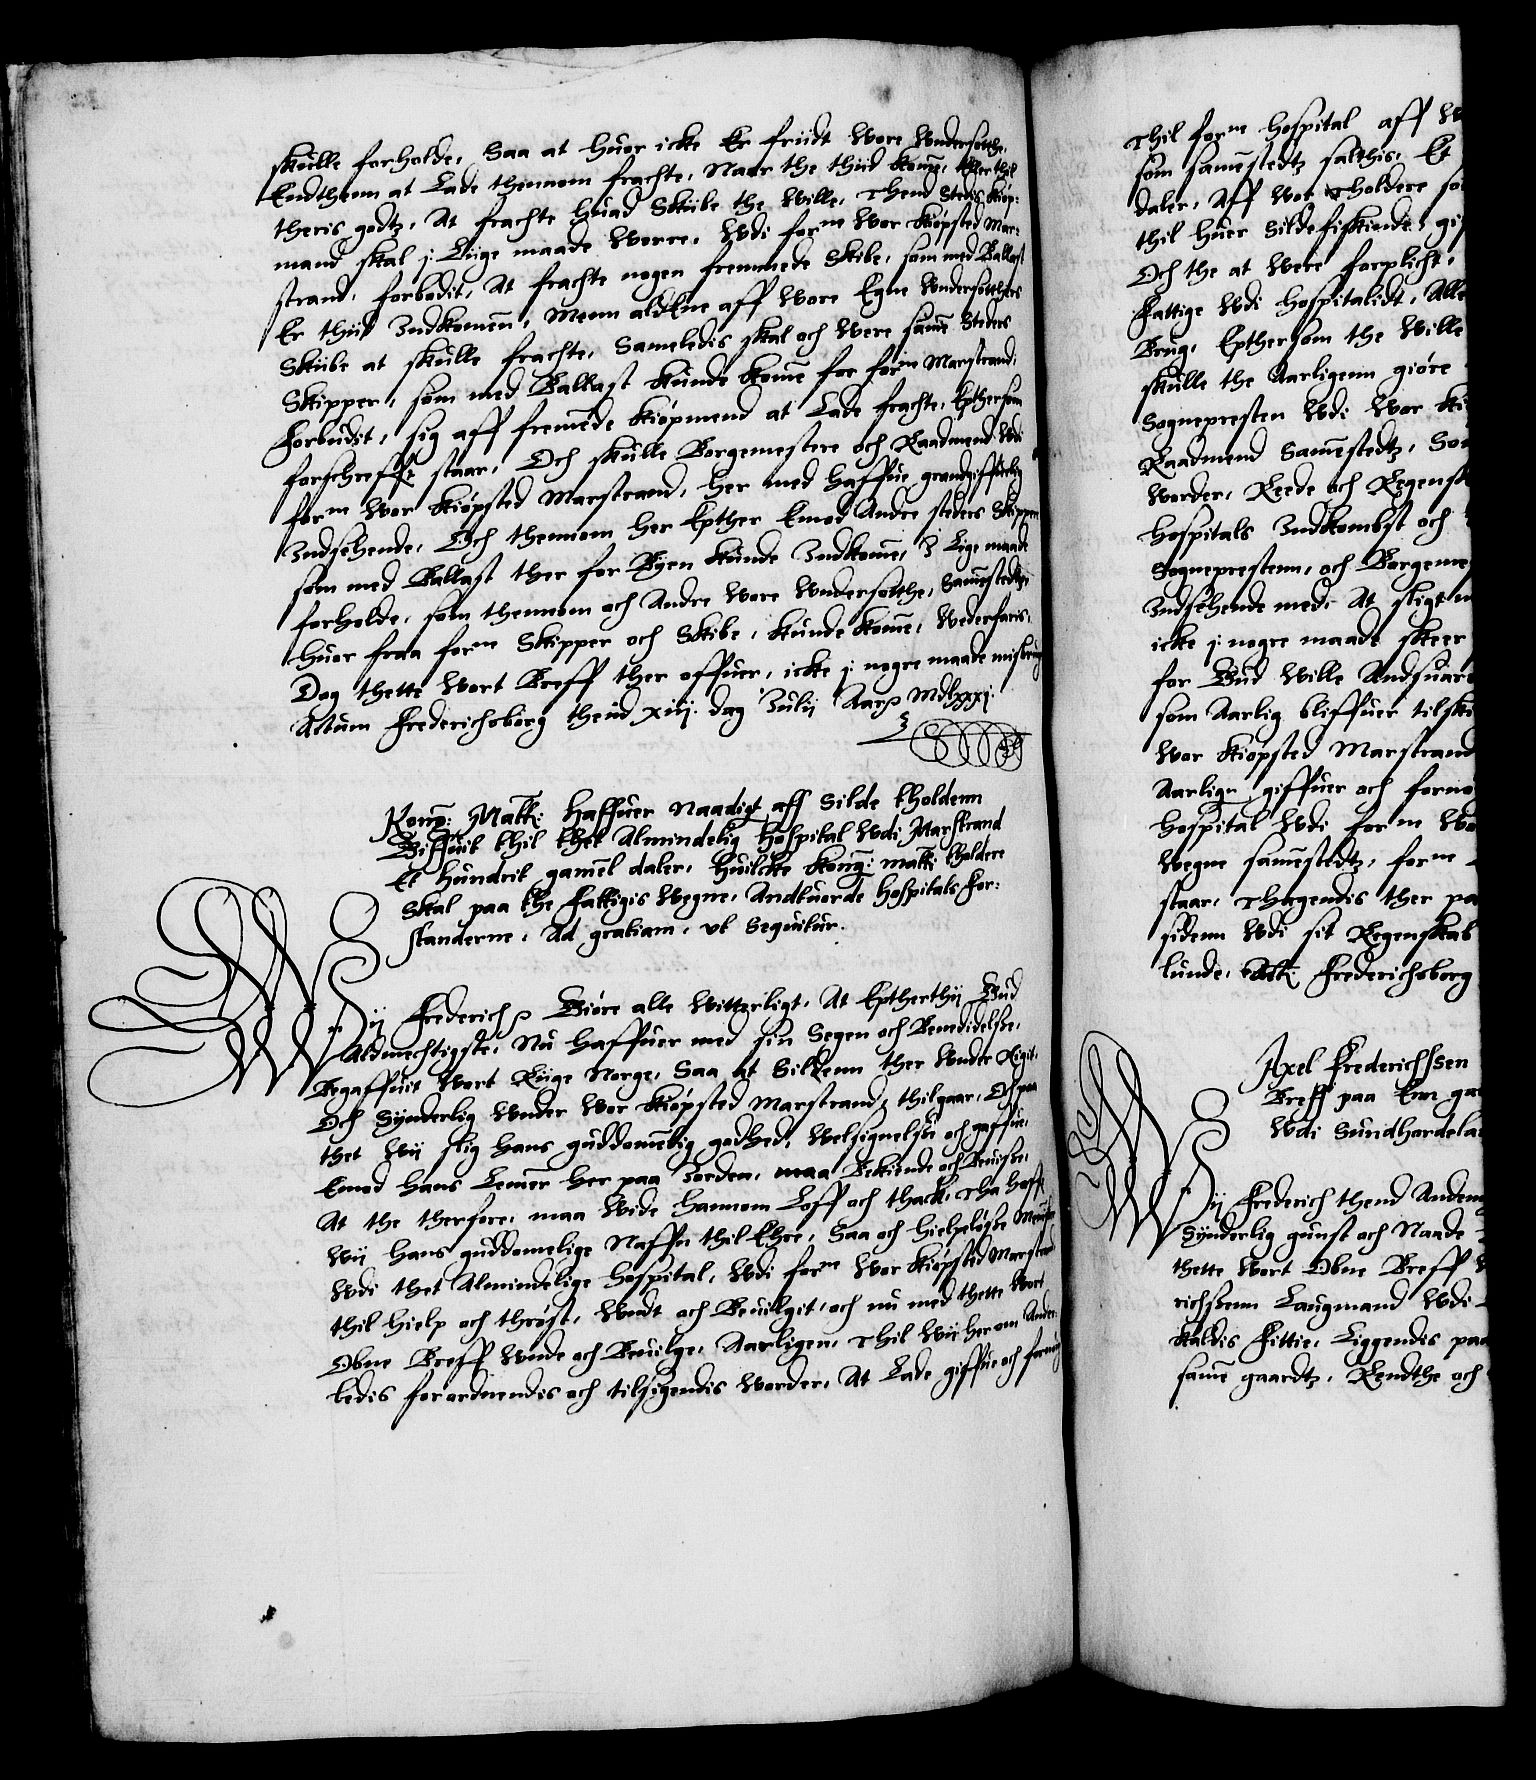 skulle forholde, Saa at huor icke Er friidt wore Undersotthe,
Endthenn at Lade thennom frachte, Naar the thiid komē, Eller thil
theris godtz, At frachte huad Skiibe the wille, Thend Stedis kiøp:
mand skal j Liige maade worre, Wdi form wor kiøpsted Mar:
strand, forbødit, At frachte nogen fremmede Skibe, som med Ballast
Er thiid Indkomēn, Menn aldEne aff wore Egne Undersotthers
Skiibe at skulle frachte, Sameledis skal och were samē Steders
Skipper, som med Ballast kunde komē for form Marstrand,
Forbudit, sig aff fremēde kiøpmend at Lade frachte, Epthersom
forschreffit staar, Och skulle Borgemestere och Raadmend Wdi
form wor kiøpsted Marstrand, her med haffue grandgiffuelig
Indseende, Och thennom her Epther Emod Andre steders Skipper
som med Ballast ther for Byen kunde Indkomē, I Lige maade
forholde, som thennom och Andre wore Undersotthe, Samēstedtz
huor fraa form Skipper och Skibe, kunde komē, wederfaris,
Dog thette wort Breff ther offuer, icke j nogre maade misbrug
Actum Frederichsborg thend xiij dag Julij Aarꝭ Mdlxxxj
Kong: Matt: haffuer Naadigt aff Silde tholdenn
Giffuit thil thet Almindelig hospital wdi Marstrand
Et hundrit gamel daler, huilcke kong: matt: tholdere
Skal paa the fattigis wegne, Andtuorde hospitals for:
standerne, Ad gratiam, ut Sequitur.
Wij Frederichꝭ Giøre alle witterligt, At Eptherthij Gud
Aldmechtigste, Nu haffuer med sin Segen och Benedidelse,
Begaffuit wort Riige Norge, Saa at Sildenn ther Under Rigit,
Och Synderlig Under wor kiøpsted Marstrand, thilgaar, Och paa
thet wij slig hans guddomēlig godhed, welsignelse och gaffue,
Emod hans Lemer her paa Jorden, maa Bekiende och Beuise,
At the therfore, maa wide hannom Loff och thack, Tha haffe
wij hans guddomelige Naffn thil Ehre, Saa och hielpeløse Menise
Wdi thet Almindelige hospital, Wdi form wor kiøpsted Marstrand
thil hielp och thrøst, Undt och Beuilgit, och nu med thette wort
Obne Breff Unde och Beuilge, Aarligen, Thil wij herom Ander:
ledis forordnendis och tilsigendis worder, At Lade giffue och fornøg
Thil form hospital aff
som samestedtz salthis, Et
daler, Aff wor tholdere
thil huer Silde fiskiende,
Och the at were forplicht,
Fattige wdi hospitalidt, Alle
Brug, Epthersom the wille
skulle the Aarligenn giøre
Sognepresten Wdi wor
Raadmend Samēstedtz,
worder, Rede och Regensk
hospitals Indkombst och
Sogneprestenn, och Borgeme
Indseende med, At sligt
icke j nogre maade skeer
for Gud wille Andsuar
som Aarlig bliffuer tilski
wor kiøpsted Marstrand
Aarlign giffuer och forno
hospital Wdi form
wegne samēstedtz, form
staar, Thagendis ther paa
sidenn Wdi sit Regenskab
lunde, Actt: Frederichsborg
Axel Frederichssen
Breff paa Enn
Wdi Sundhordela
Wij Frederich thend Anden
Synderlig gunst och Naade
thette wort Obne Breff
richssenn Laugmand Wdi
kaldis Fittie, Liggendis paa
samē gaardtz, Rendthe och